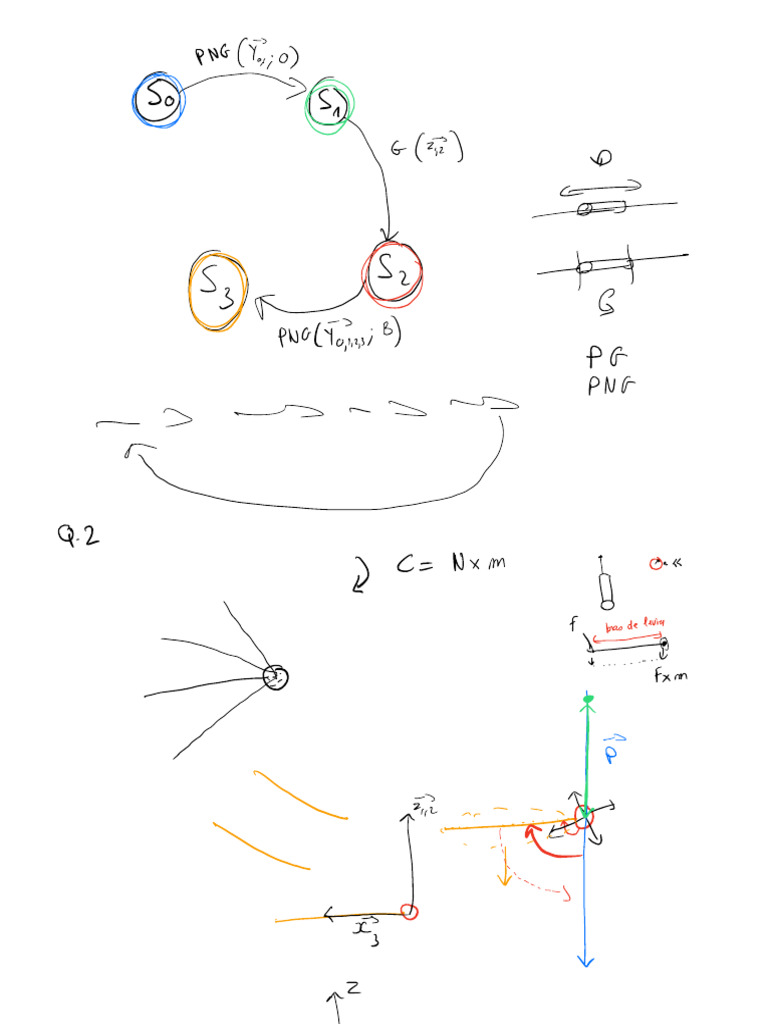 PNG (Y⃗₀,₁; 0)
S₀
S₁
G (z⃗₁,₂)
S₃
S₂
PNG (Y⃗₀,₁,₂,₃; B)
G
PG
PNG
Q.2
C = N x m
<<
f
bras de levier
F x m
P⃗
z⃗₁,₂
x⃗₃
z